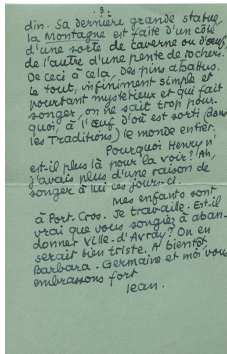 .3.
din. Sa dernière grande statue,
la Montagne est faite d'un côté
d'une sorte de caverne ou d'œuf,
de l'autre d'une pente de rochers.
De ceci à cela, des pins abattus.
le tout, infiniment simple et
pourtant mystérieux et qui fait
songer, on ne sait trop pour-
quoi, à l'Œuf d'où est sorti (dans
les Traditions) le monde entier.
Pourquoi Henry n'
est-il plus là pour la voir? Ah,
j'avais plus d'une raison de
songer à lui ces jours-ci.
Mes enfants sont
à Port-Cros. Je travaille. Est-il
vrai que vous songiez à aban-
donner Ville-d'Avray? On en
serait bien triste. A bientôt,
Barbara. Germaine et moi vous
embrassons fort
Jean.